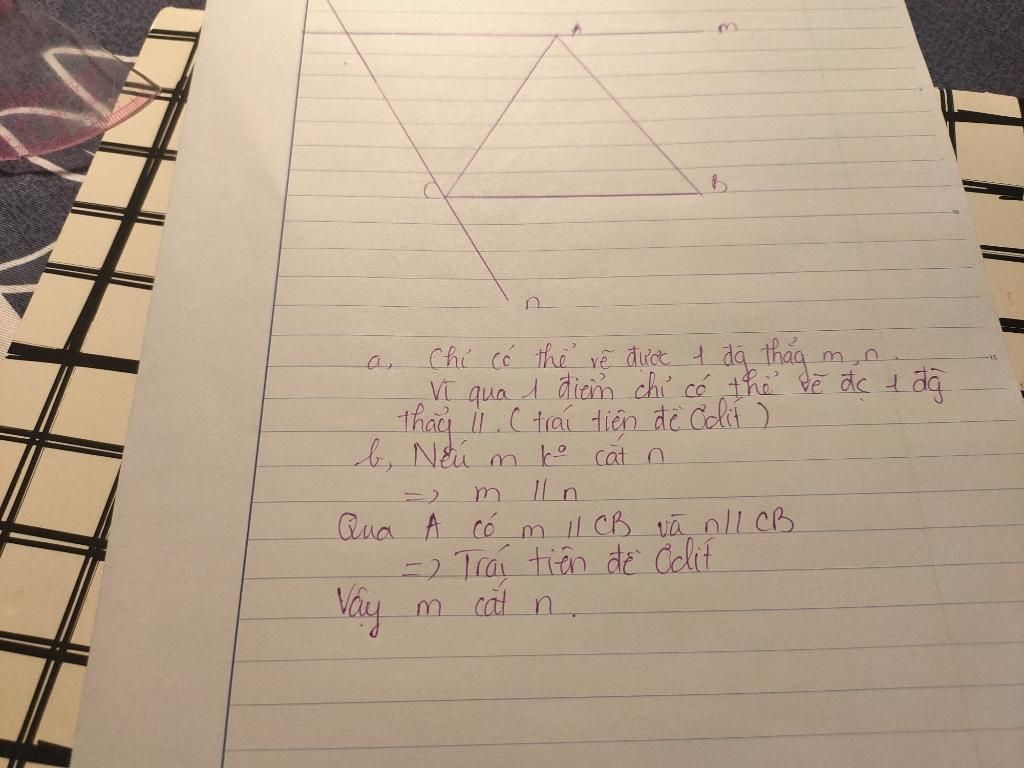 A m
C B
n
a, Chỉ có thể vẽ được 1 đg thẳg m, n.
Vĩ qua 1 điểm chỉ có thể vẽ đc 1 đg
thẳg //. (trái tiên đề Ơclit)
b, Nếu m ko cắt n
=> m // n
Qua A có m // CB và n // CB
=> Trái tiên đề Ơclit
Vậy m cắt n.